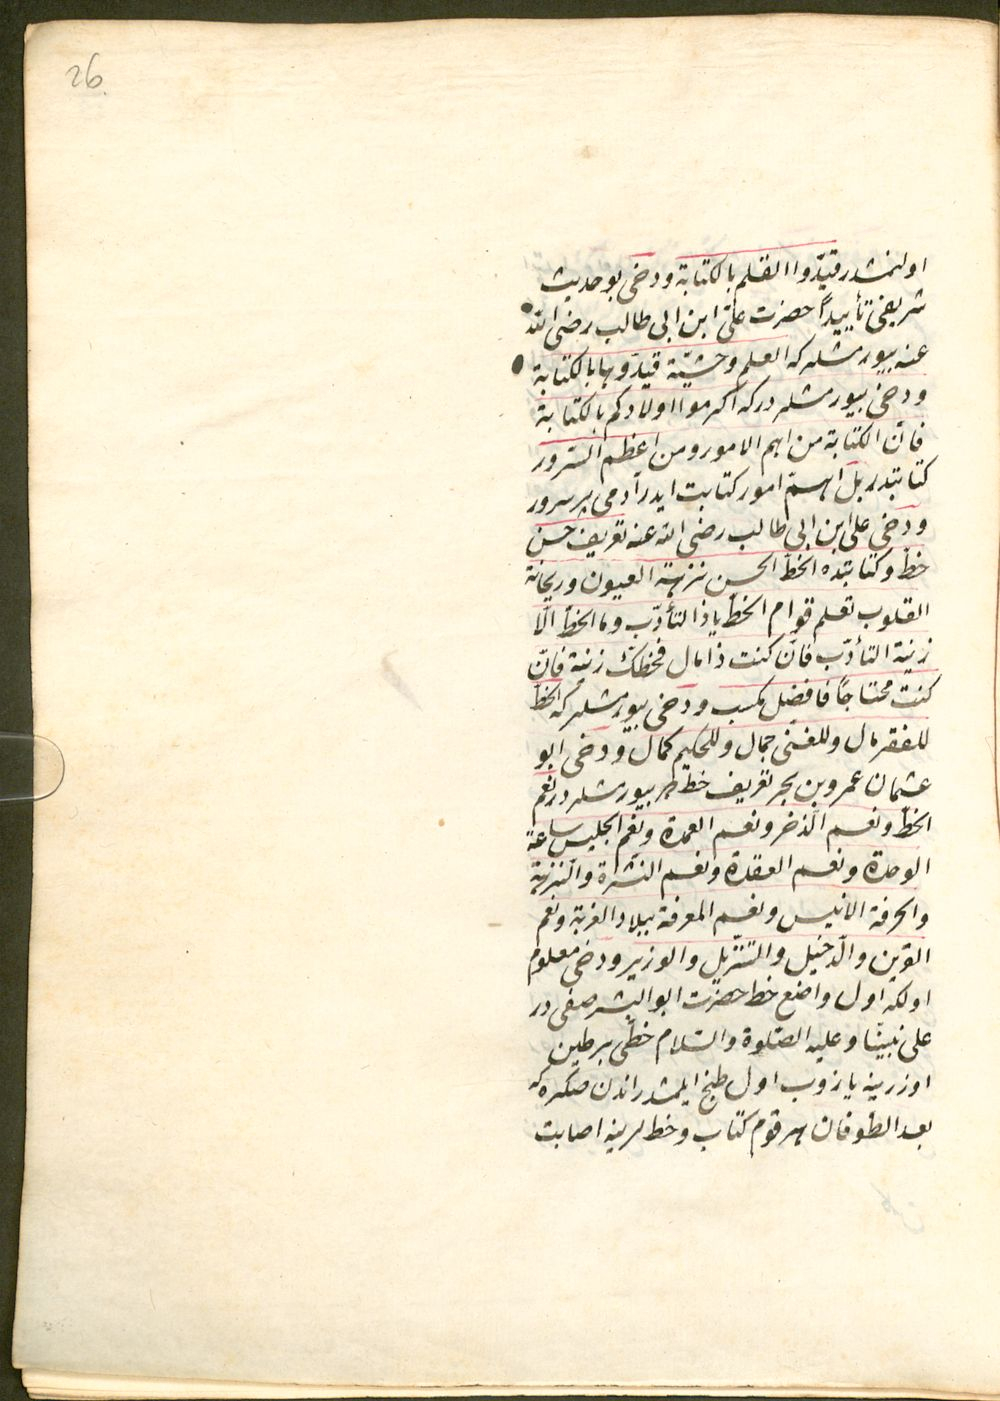 26.
اولنمشدر قيّدوا القلم بالكتابة ودخى بو حديث
شريفى تأييداً حضرت على ابن ابى طالب رضى الله
عنه بيورمشلر كه العلم وحشيّة قيدّوها بالكتابة
ودخى بيورمشلر دركه اكرموا اولادكم بالكتابة
فانّ الكتابة من اهم الامور ومن اعظم السّرور
كتابتدر بل اهمّ امور كتابت ايدر آدمى پر سرور
ودخى على ابن ابى طالب رضى الله عنه تعريف حسن
خطّ وكتابتده الخطّ الحسن نزهة العيون وريحانة
القلوب تعلم قوام الخطّ ياذا التأدّب وما الخطّ الّا
زينة التأدّب فانّ كنت ذا مال فخطّك زينة فانّ
كنت محتاجاً فافضل مكسب ودخى بيورمشلر كه الخطّ
للفقر مال وللغنى جمال وللحكيم كمال ودخى ابو
عثمان عمرو بن بحر تعريف خطده بيورمشلر در نعم
الخطّ ونعم الذّخر ونعم العمدة ونعم الجليس ساعة
الوحدة ونعم العقدة ونعم النشرة والنزهة
والحرفة الانيس ونعم المعرفة ببلاد الغربة ونعم
القرين والدّخيل والتنزّيل والوزير ودخى معلوم
اولكه اول واضع خط حضرت ابو البشر صفى در
على نبيّنا وعليه الصّلوة والسّلام خطّى بر طين
اوزرينه يازوب اول طبخ ايلمشدر اندن صكره كه
بعد الطوفان هر قوم كتاب وخطلرينه اصابت